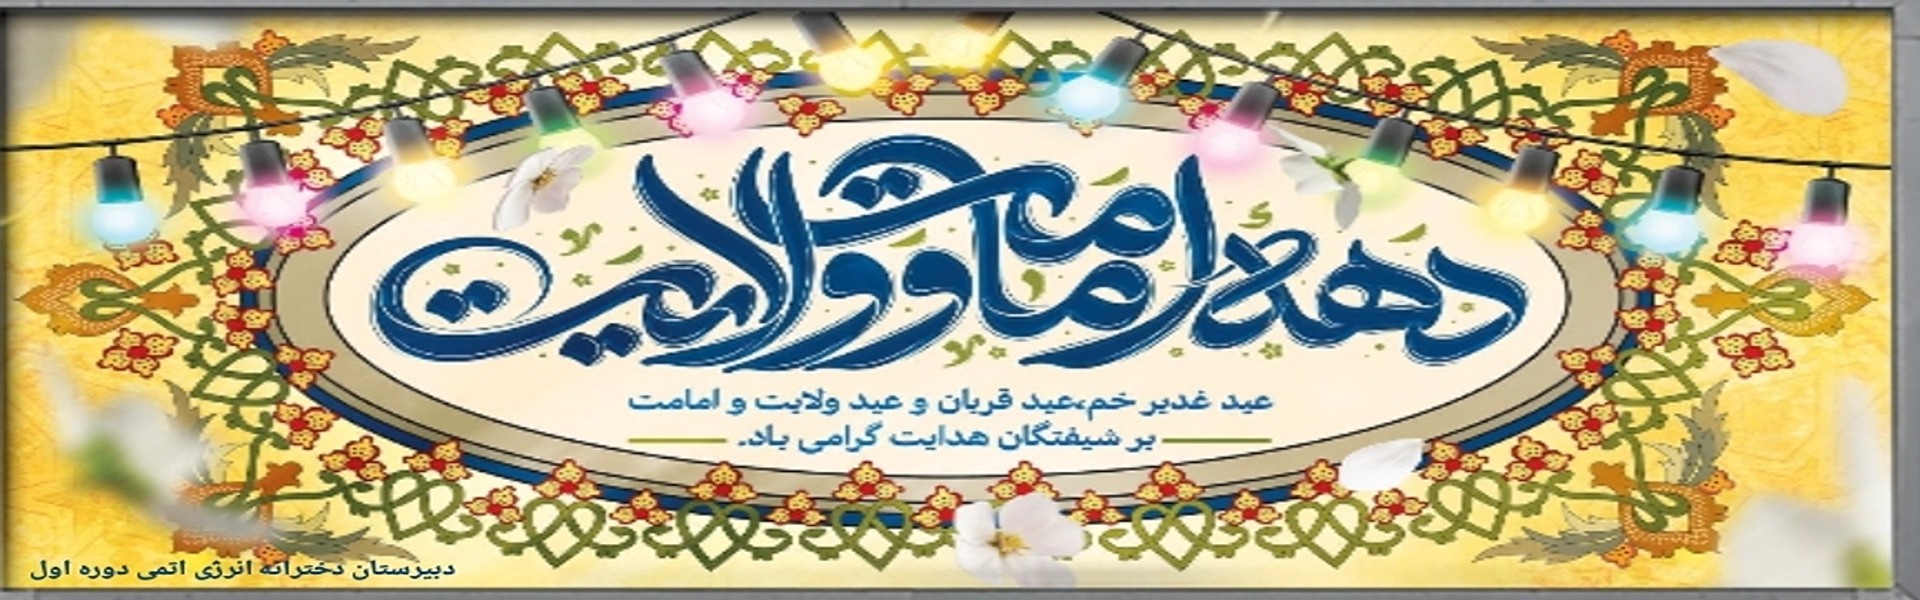 دهه امامت و ولایت
عید غدیر خم،عید قربان و عید ولایت و امامت
بر شیفتگان هدایت گرامی باد.
دبیرستان دخترانه انرژی اتمی دوره اول